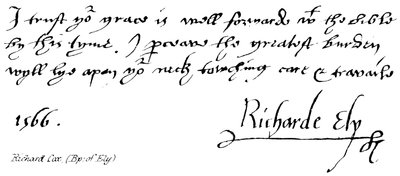 I trust yor grace is well forwarde wt the bible
by this tyme. I pceave the greatest burden
wyll lye apon yor neck towching care & travaile
1566.
Richarde Ely
Richard Cox. (Bp. of Ely)